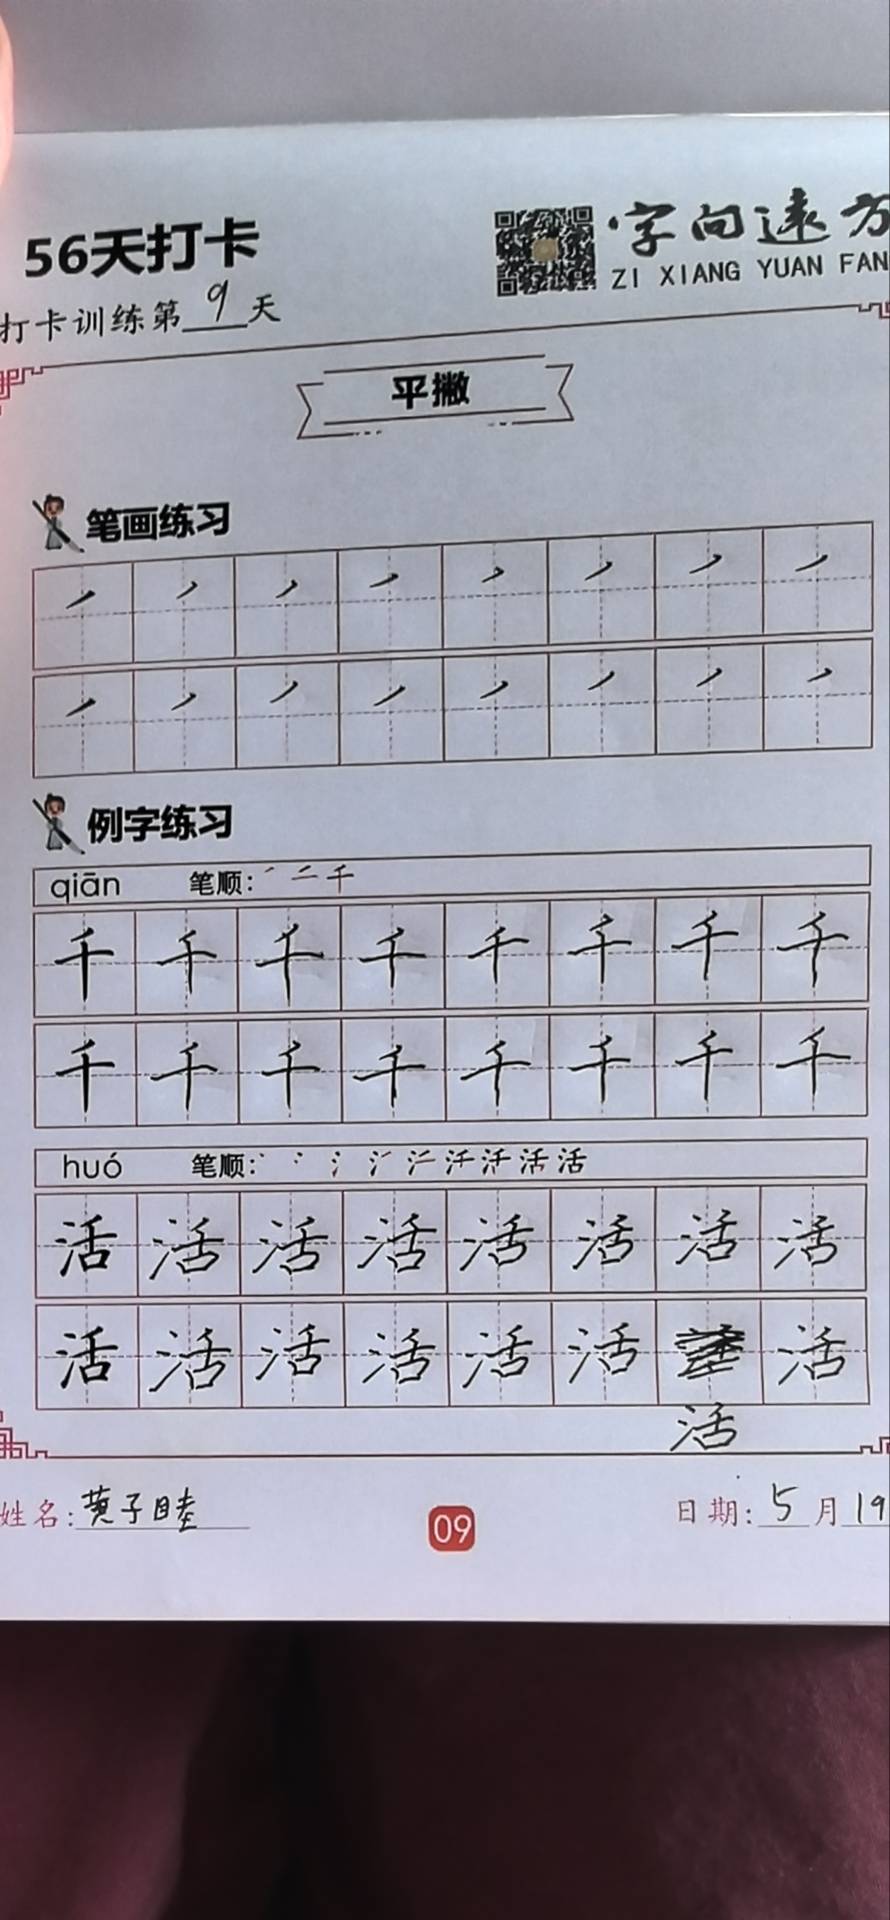 56天打卡
字向远方
ZI XIANG YUAN FAN
打卡训练第9天
平撇
笔画练习
例字练习
qiān 笔顺: ㇒ 二 千
千 千 千 千 千 千 千 千
千 千 千 千 千 千 千 千
huó 笔顺:
活 活 活 活 活 活 活 活
活 活 活 活 活 活 活
活
姓名: 黄子睦
09
日期: 5月19